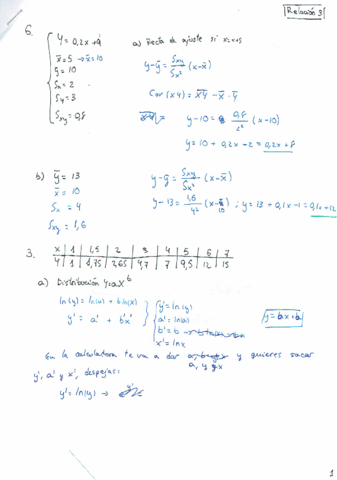 Relación 3
6. y = 0,2x + 9
x̄ = 5 → x̄ = 10
ȳ = 10
Sx = 2
Sy = 3
Sxy = 0,8
a) Recta de ajuste si x = x+5
y - ȳ = Sxy/Sx² (x - x̄)
Cov(xy) = x̄ȳ - x̄ · ȳ
y - 10 = 0,8/2² (x - 10)
y = 10 + 0,2x - 2 = 0,2x + 8
b) ȳ = 13
x̄ = 10
Sx = 4
Sxy = 1,6
y - ȳ = Sxy/Sx² (x - x̄)
y - 13 = 1,6/4² (x - 10) ; y = 13 + 0,1x - 1 = 0,1x + 12
3. x | 1 | 1,5 | 2 | 3 | 4 | 5 | 6 | 7
y | 1 | 1,75 | 2,65 | 4,7 | 7 | 9,5 | 12 | 15
a) Distribución y = aX^b
ln(y) = ln(a) + b ln(x)
y' = a' + b'x'
y' = ln(y)
a' = ln(a)
b' = b
x' = ln x
En la calculadora te va a dar y quieres sacar
a, y x
y', a' y x', despejas:
y' = ln(y) →
1